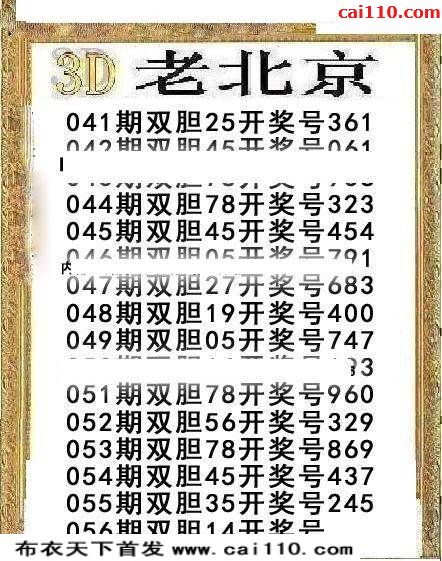 cai110.com
3D 老北京
041期双胆25开奖号361
042期双胆45开奖号061
044期双胆78开奖号323
045期双胆45开奖号454
046期双胆05开奖号791
047期双胆27开奖号683
048期双胆19开奖号400
049期双胆05开奖号747
051期双胆78开奖号960
052期双胆56开奖号329
053期双胆78开奖号869
054期双胆45开奖号437
055期双胆35开奖号245
056期双胆14开奖号
布衣天下首发 www.cai110.com